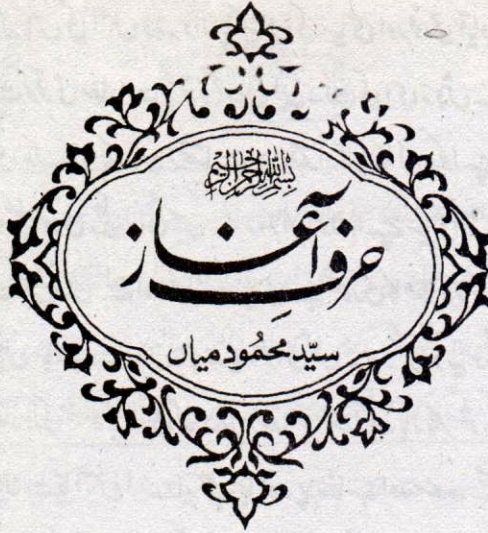 بسم الله الرحمن الرحيم
حرفِ آغاز
سیّد محمُود میاں